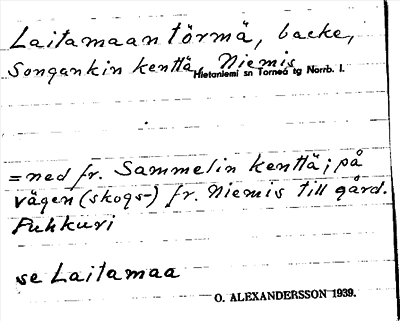 Laitamaan törmä, backe,
Songankin kenttä, Niemis
Hietaniemi sn Torneå tg Norrb. l.
= ned fr. Sammelin kenttä; på
vägen (skogs-) fr. Niemis till gård.
Puhkuri
se Laitamaa
O. ALEXANDERSSON 1939.